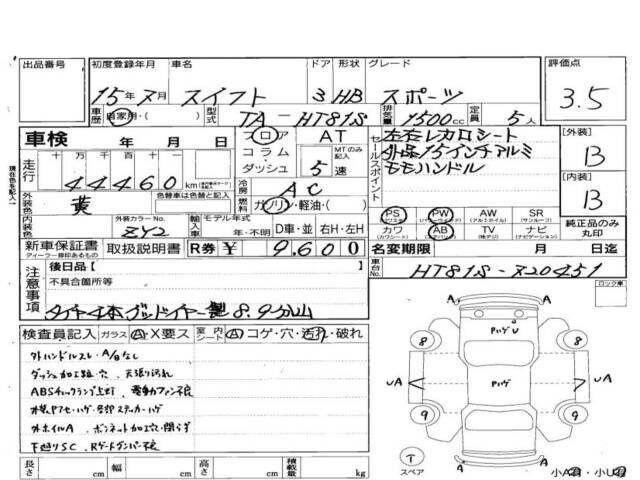 出品番号 初度登録年月 車名 ドア 形状 グレード 評価点
15年 月 スイフト 3 HB スポーツ 3.5
車歴 自家用・( ) 型式 TA-HT81S 排気量 1500cc 定員 5人
車検 年 月 日 フロア AT 左右レカロシート [外装]
走行 十 万 千 百 十 コラム MTのみ記入 セールスポイント 外品15インチアルミ B
44460 km ダッシュ 5速 モモハンドル [内装]
現在色を記入 外装色 黄 色替車は色替を記入 冷房 AC B
燃料 ガソリン・軽油・( ) PS PW AW SR 純正品のみ丸印
内装色 外装カラーNo. ZY2 輸入車 モデル年式 年・不明 D車・並 右H・左H カワ AB TV ナビ
新車保証書 取扱説明書 R券 ¥ 9,600 名変期限 月 日迄
ディーラー捺印あるもの
注意事項 後日品[ 車台No. HT81S-720451
不具合箇所等 ロック車
タイヤ4本グッドイヤー製 8.9分山
検査員記入 ガラス A・X要ス 室内シート A コゲ・穴・汚れ・破れ
外ハンドルスレ・A/Bなし
ダッシュ加工跡・穴 天張り汚れ
ABSチェックランプ上灯 電動ファン不良
外ホイルA ボンネット加工穴・閉らず
下廻りSC Rゲートダンパー不良
長さ cm 幅 cm 高さ cm 積載量 kg
PハゲU
8 8
UA Pハゲ UA
9 9
T スペア A A